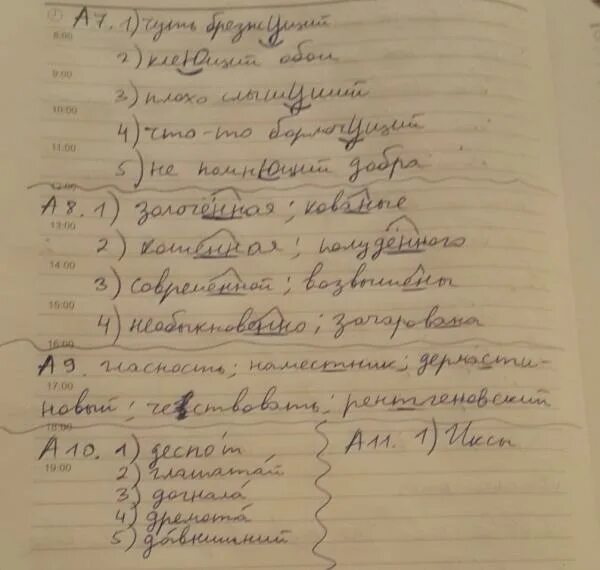 А7. 1) чуть брезжУщий
8:00
2) клеЮщий обои
9:00
3) плохо слышУщий
10:00
4) что-то бормочУщий
11:00
5) не помнЮщий добра
12:00
А8. 1) золочённая; кованые
13:00
2) кошенная; полудённого
14:00
3) современной; возвышены
15:00
4) необыкновенно; зачарована
16:00
А9. гласность; наместник; дермасти-
17:00
новый; чествовать; рентгеновский
18:00
А10. 1) деспо́т
19:00
2) глашатай
3) догнала́
4) дремота́
5) да́внишний
А11. 1) Иксы